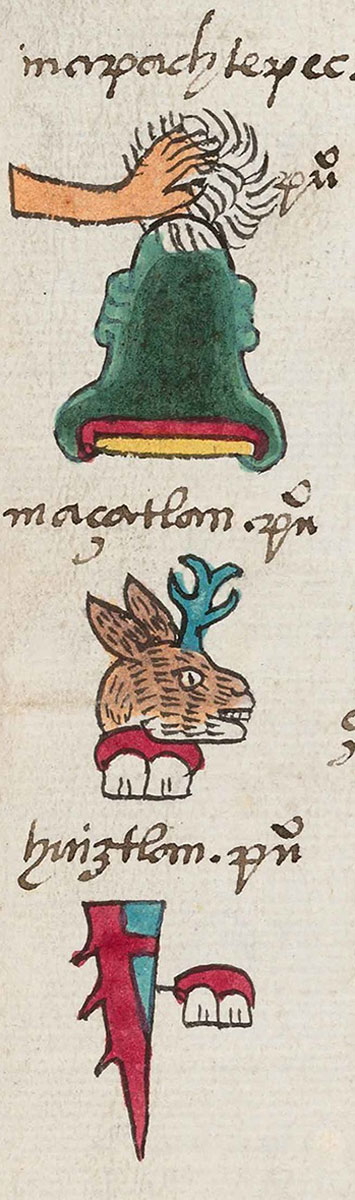 mapachtepec.
pũ
maçatlan. pũ
huiztlan. pũ